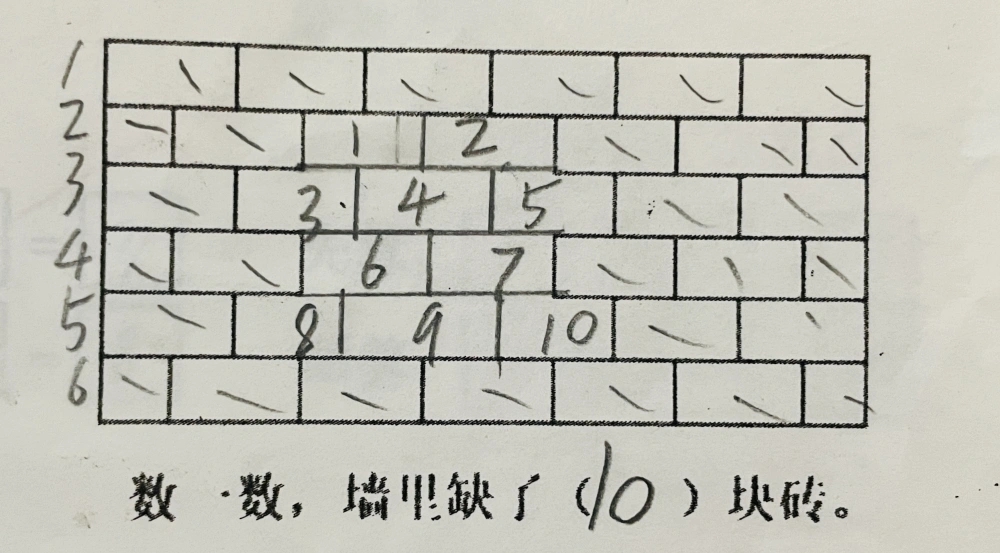 1
2 1 2
3 3 4 5
4 6 7
5 8 9 10
6
数一数，墙里缺了（10）块砖。